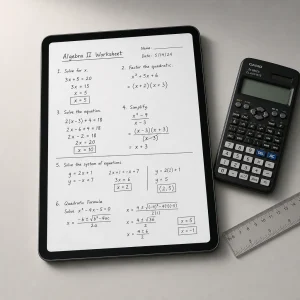 Algebra II Worksheet
Name:
Date: 5/19/24
1. Solve for x.
3x + 5 = 20
3x = 15
x = 5
x = 5
2. Factor the quadratic.
x² + 5x + 6
= (x + 2)(x + 3)
3. Solve the equation.
2(x - 3) + 4 = 18
2x - 6 + 4 = 18
2x - 2 = 18
2x = 20
x = 10
4. Simplify.
x² - 9
x - 3
= (x - 3)(x + 3)
(x - 3)
= x + 3
5. Solve the system of equations.
y = 2x + 1
y = -x + 7
2x + 1 = -x + 7
3x = 6
x = 2
y = 2(2) + 1
y = 5
(2, 5)
6. Quadratic Formula
Solve x² - 4x - 5 = 0
x = -b ± √b² - 4ac
2a
2(1)
x = 4 ± √36
2
x = 4 ± 6
2
x = 5
x = -1
CASIO